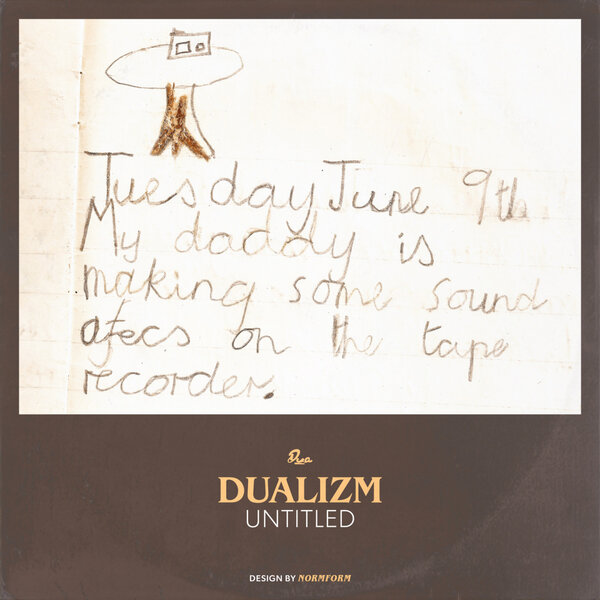 Tuesday June 9th
My daddy is
making some sound
afecs on the tape
recorder.
Dua
DUALIZM
UNTITLED
DESIGN BY NORMFORM